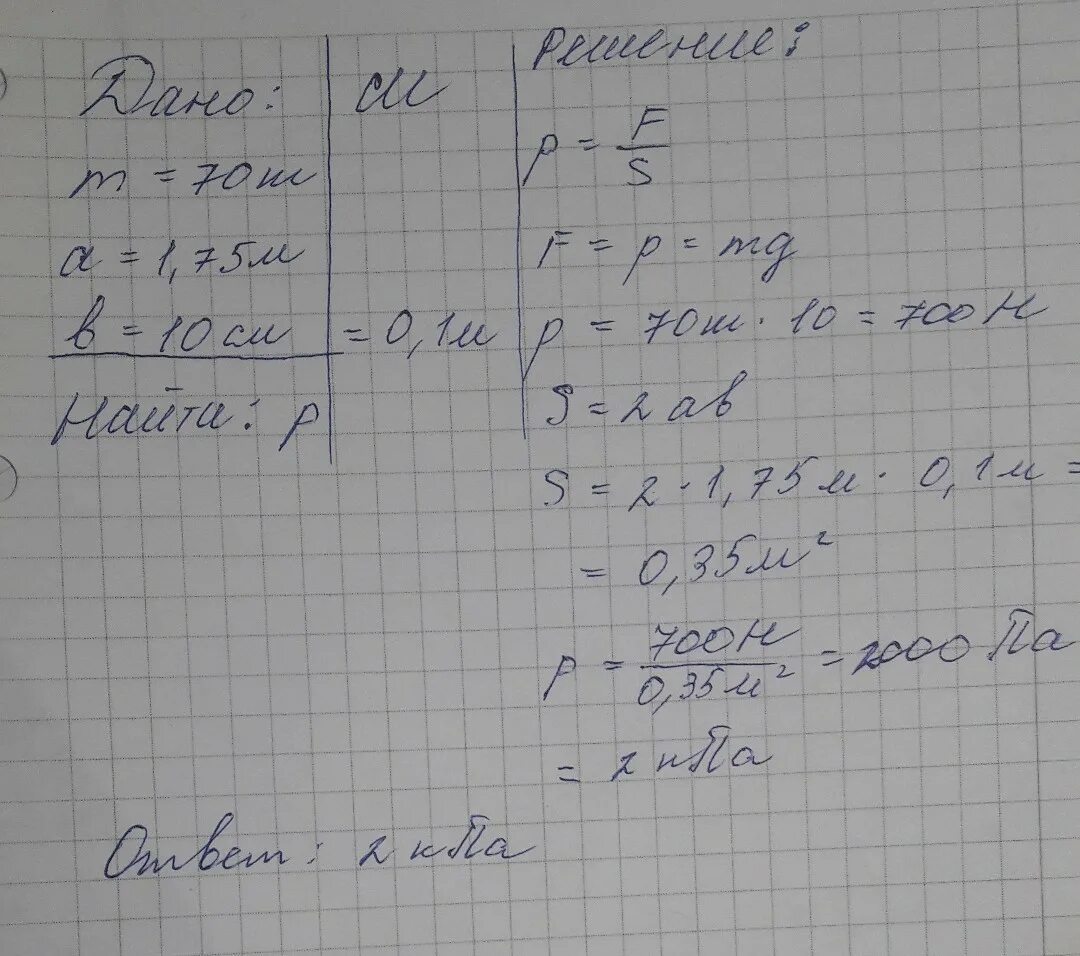 Дано:
m = 70т
a = 1,75м
b = 10см
Найти: p
СИ
= 0,1м
Решение:
p = F/S
F = p = mg
p = 70т · 10 = 700Н
S = 2ab
S = 2 · 1,75м · 0,1м =
= 0,35м²
p = 700Н/0,35м² = 2000 Па
= 2 кПа
Ответ: 2 кПа